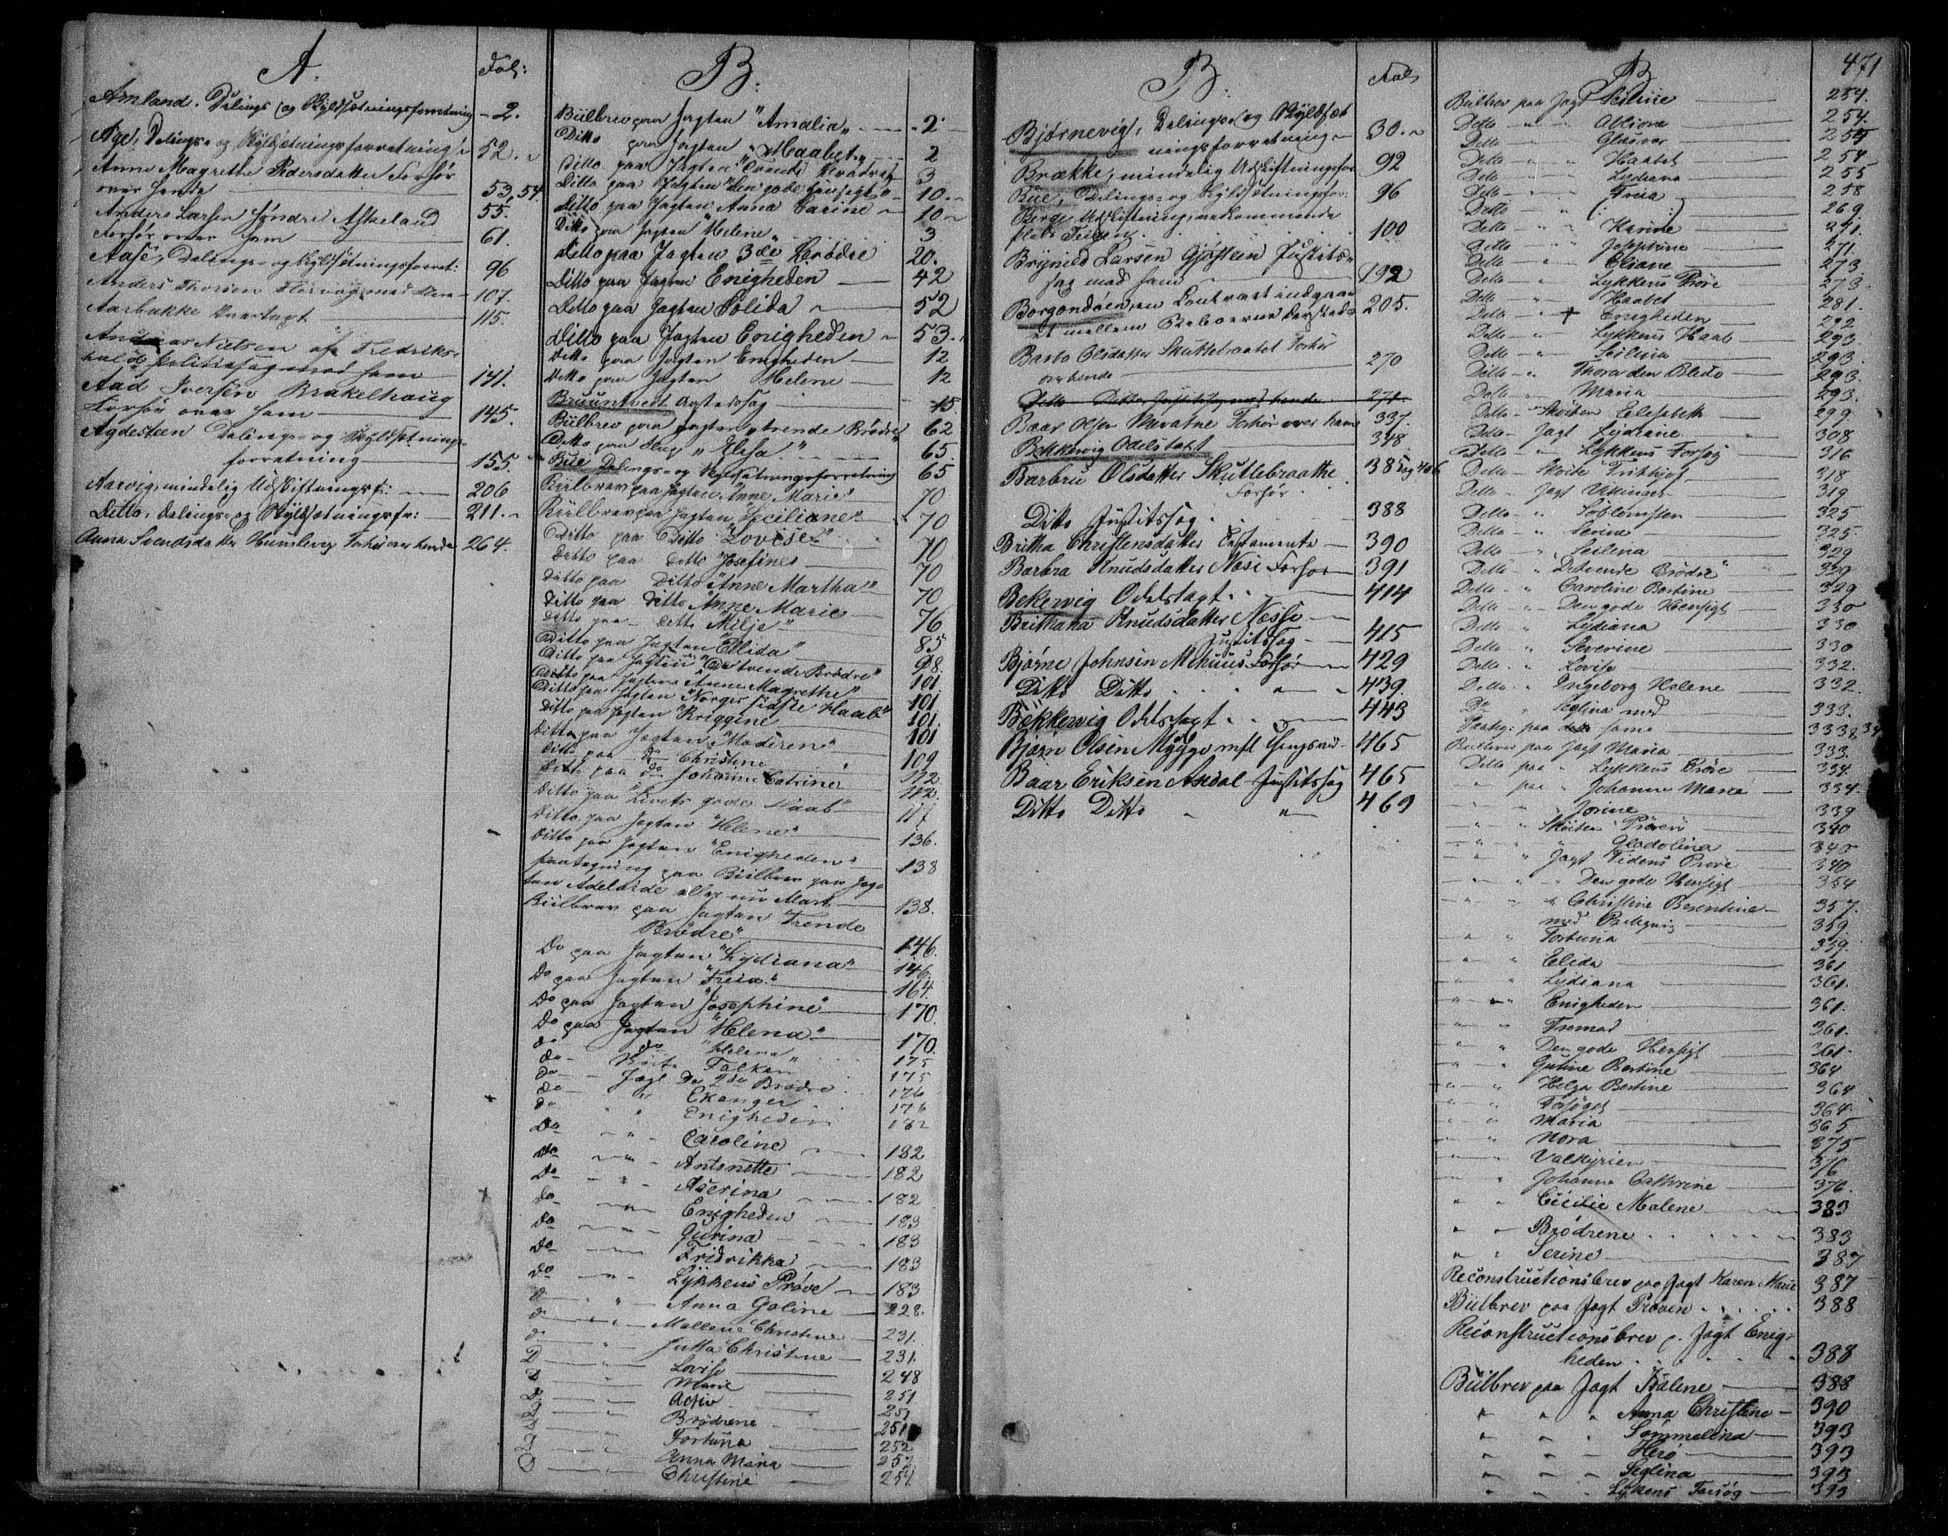 A.
Fol:
Amland. Delings- og Skyldsætningsforretning - 2.
Age, Delings- og Skyldsætningsforretning 52.
Anne Magrethe Pedersdatter Forhør
over hende 53, 54.
Anders Larsen Søndre Askeland 55.
Forhør over ham 61.
Aase, Delings- og Skyldsætningsforret: 96
Anders Thorsen 107.
Aarbakke 115.
Nielsen af Fredriks-
hald Politiesag mod ham 141.
Aad Iversen Brakelhaug
Forhør over ham 145.
Agdesteen Delings- og Skyldsætnings-
forretning 155.
Aarvig, mindelig Udskiftningsf: 206
Ditto, Delings- og Skyldsætningsfr: 211.
Anna Svendsdatter Forhør over hende 264.
B.
Biilbrev paa Jagten "Amalia" 2
Ditto paa Jagten "Haabet" 2
Ditto paa Jagten 3
Ditto paa Jagten "den gode Hensigt" 10
Ditto paa Jagten Anna Carine 10
Ditto paa Jagten "Helene" 3
Ditto paa Jagten 3de Brødre 20.
Ditto paa Jagten Enigheden 42
Ditto paa Jagten Solida 52
Ditto paa Jagten Enigheden 53.
Ditto paa Jagten Enigheden 12
Ditto paa Jagten Helene 12
Bruuntveit Aastedssag 15.
Biilbrev paa Jagten trende Brødre 62
Ditto paa Slup "Elisa" 65.
Bue Delings- og Skyldsætningsforretning 65
Biilbrev paa Jagten "Anne Marie" 70
Biilbrev paa Jagten "Ceciliane" 70
Ditto paa Ditto "Lovise" 70
Ditto paa Ditto "Josefine" 70
Ditto paa Ditto "Anne Martha" 70
Ditto paa Ditto "Anne Marie" 76
Ditto paa Ditto "Silje" 85
Ditto paa Jagten "Elida" 98
Ditto paa Jagten "De tvende Brødre" 101
Ditto paa Jagten Anne Magrethe" 101
Ditto paa Jagten "Norges sidste Haab" 101.
Ditto paa Jagten "Kriggine" 101
Ditto paa Jagten "Moderen" 109
Ditto paa Do Christine 112
Ditto paa do Johanne Catrine 112.
Ditto paa "Livets gode Haab" 117
Ditto paa Jagten "Helene" 136.
Ditto paa Jagten "Enigheden" 138
Paategning paa Biilbrev paa Jag-
ten Adelaide eller nu Mart 138.
Biilbrev paa Jagten Trende
Brødre" 146.
Do paa Jagten "Lydiana" 146.
Do paa Jagten "Freia" 164.
Do paa Jagten "Josephine" 170.
Do paa Jagten "Helena" 170.
do do "Helena" 175
do Falken 175
do Jagt De 2de Brødre 176
do " Ekanger 176
do " Enigheden 182
Do " Caroline 182
do " Antonette 182
Do " Acerina 182
do " Enigheden 183
do " Gurina 183
do Fridrikka 183
do " Lykkens Prøve 183
d " Anna Goline 228.
d " Mallene Christine 231.
d " Jutta Christine 231.
D " Lovise 248
D " Marie 251
D Activ 251
D Brødrene 251
D Fortuna 252
D Anna Maria 252
D Christine 254
B.
Fol.
Bjørnevig, Delings- og Skyldsæt
ningsforretning 30.
Brække, mindelig Udskiftningsfor 92
Bue, Delings- og Skyldsætningsfor: 96
Berge Udskiftning
100
Brynild Larsen Gjøsteen Justits-
sag mod ham 192
Borgandøen, en Contract indgaaet
mellem Beboerne dersteds 205.
Barbo Olsdatter Skuttebraatet Forhør
over hende 270
Ditto Ditto Justitssag mod hende 271.
Baar Olsen Forhør over ham 337.
Bekkevig Odelstagt 348
Barbru Olsdatter Skuttebraathe
Forhør 385 og 406
Ditto Justitssag 388
Britha Christensdatter Testamente 390
Barbra Knudsdatter Næse Forhør 391
Bekervig Odelstagt 414
Brithana Knudsdatter Næsse
Justitssag 415
Bjørne Johnsen Mehuus Forhør 429
Ditto Ditto 439.
Bækkervig Odelstagt 443
Bjørn Olsen Mygge 465
Baar Eriksen Andal Justitssag 465
Ditto Ditto 469
B
471
Biilbrev paa Jagt Seline 254.
Ditto Aliona 254.
Ditto Gløaver 254
Ditto Haabet 254
Ditto Lydiana 255
Ditto Freia 258
Ditto 269
Ditto Karine 271.
Ditto Josephine 271
Ditto Eliane 273
Ditto Lykkens Prøve 273.
Ditto Haabet 281.
Ditto + Enigheden 292
Ditto Lykkens Haab 293.
Ditto Seilina 293.
Ditto Thora den Blide 293.
Ditto Maria 293.
Ditto Skøiten Elisabeth 299
Ditto Jagt Lydiane 308
Ditto Lykkens Forsøg 316
Ditto Skøite Frithjof 318
Ditto Jagt Vikingen 319
Ditto Søblomsten 325
Ditto Serine 325.
Ditto Seilena 329
Ditto De tvende Brødre" 329
Ditto Caroline Bertine 329
Ditto Den gode Hensigt 330
Ditto Lydiana 330
Ditto Severine 330
Ditto Lovise 332.
Ditto Ingeborg Helene 332.
Do Seglina med 333.
Paateg: paa samme 333 & 34
Biilbrev paa Jagt Maria 333.
Ditto paa Lykkens Prøve 334.
" paa Johanne Marie 334.
" Jorine 339
" Skøiten Prøven 340
" Gladolina 340
" Jagt Tidens Prøve 340
" Den gode Hensigt 354
" Christine Berentine 357.
med 359.
" Fortuna 359.
" Elida 361
" Lydiana 361.
" Enigheden 361.
" Fremad 361.
" Den gode Hensigt 361.
" Guline Bertine 364
" Helga Bertine 364
" Forsøget 364.
" Maria 365
" Nora 375
" Valkyrien 376
" Johanne Cathrine 376.
" Cecilie Malene 383
" Brødrene 383
" Serine 387
Reconstructionsbrev paa Jagt Karen Marie 387
Biilbrev paa Jagt Prøven 388
Reconstructionsbrev p. Jagt Enig-
heden 388
Biilbrev paa Jagt Kalene 388
" Anna Christine 390
" Sommelina 393
" Herø 393
" Seglina 393
" Lykens Forsøg 393